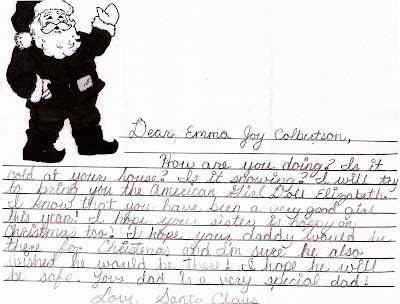 Dear Emma Joy Colbertson,
How are you doing? Is it
cold at your house? Is it snowing? I will try
to bring you the American Girl Doll Elizabeth.
I know that you have been a very good girl
this year! I hope your sister is happy on
Christmas too! I hope your daddy would be
there for Christmas and I'm sure he also
wished he would be there! I hope he will
be safe. Your dad is a very special dad!
Love, Santa Claus